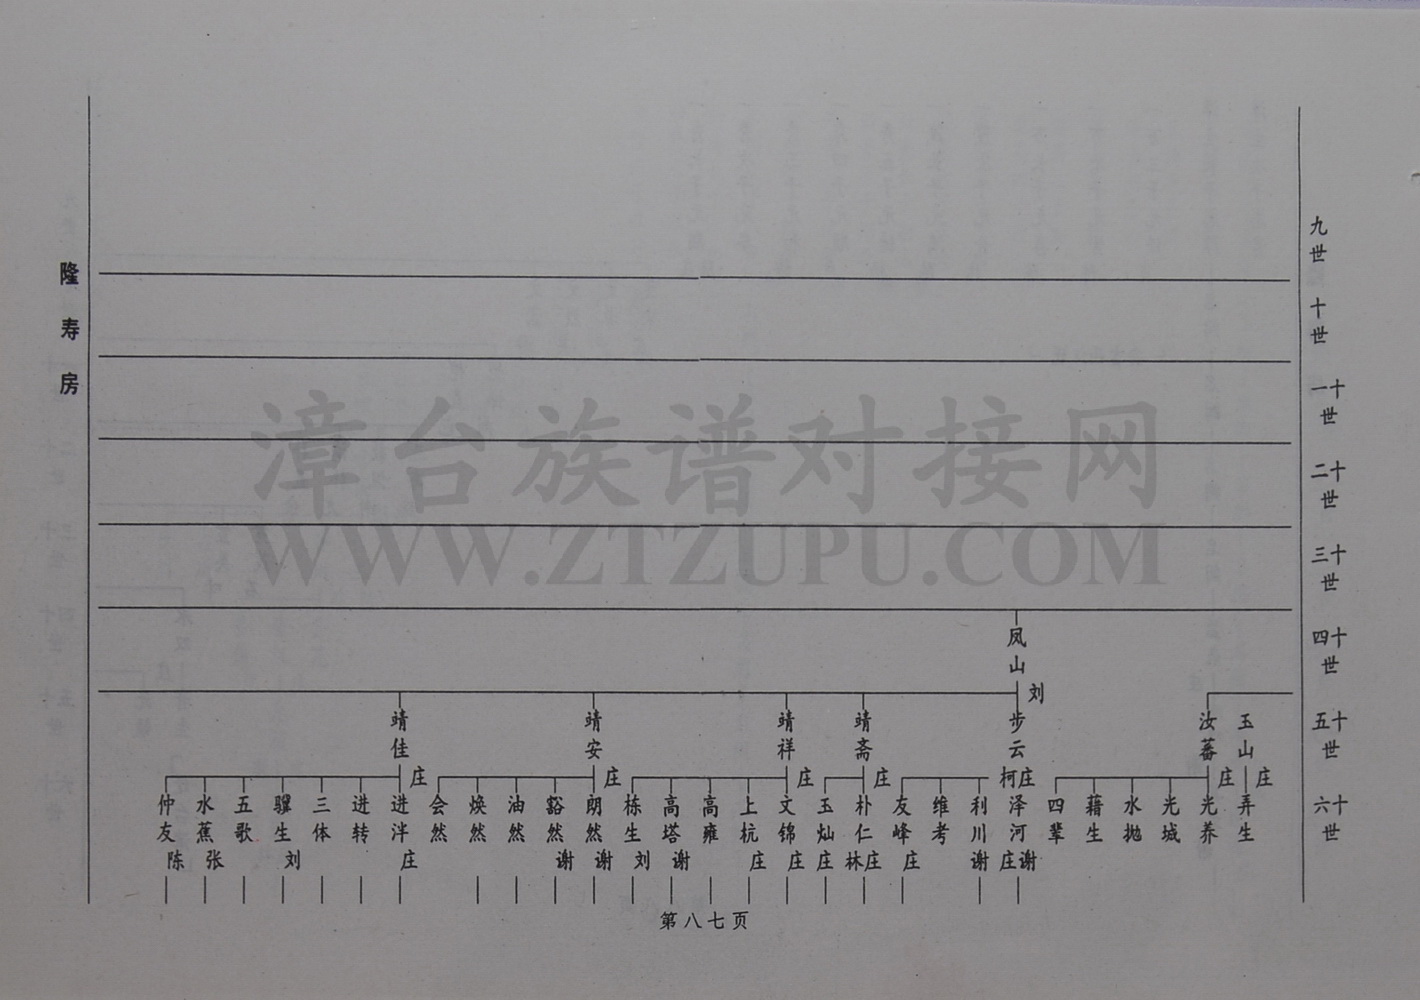 隆寿房
九世
十世
十一世
十二世
十三世
十四世
十五世
十六世
凤山
刘
玉山
汝蕃
步云
靖斋
靖祥
靖安
靖佳
庄
庄
柯庄
庄
庄
庄
庄
弄生
光养
光城
水抛
藉生
四辈
泽河 庄谢
利川 谢
维考
友峰 庄
朴仁 林庄
玉灿 庄
文锦 庄
上杭 庄
高雍
高塔 谢
栋生 刘
朗然 谢
豁然 谢
油然
焕然
会然
进泮 庄
进转
三体
骥生 刘
五歌
水蕉 张
仲友 陈
第八七页
漳台族谱对接网
WWW.ZTZUPU.COM